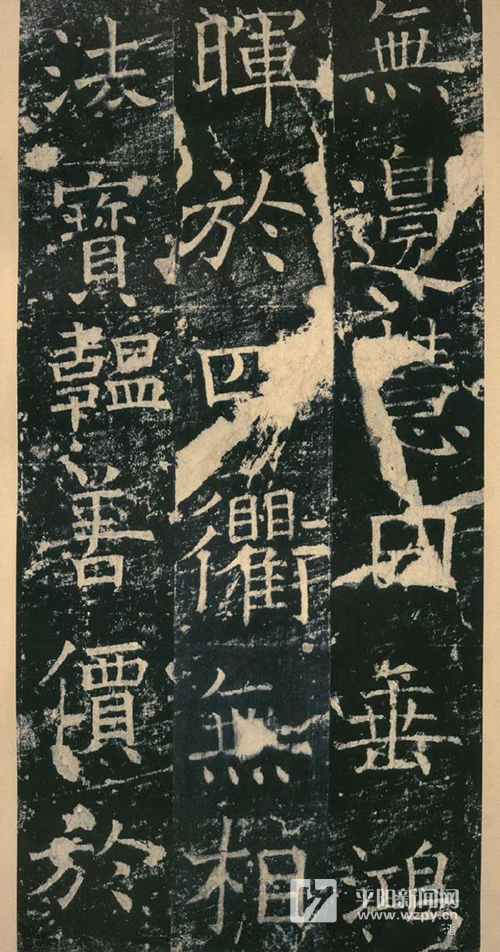 無邊慧日垂鴻
暉於四衢無相
法寶韞善價於
平阳新闻网
www.wzpy.cn